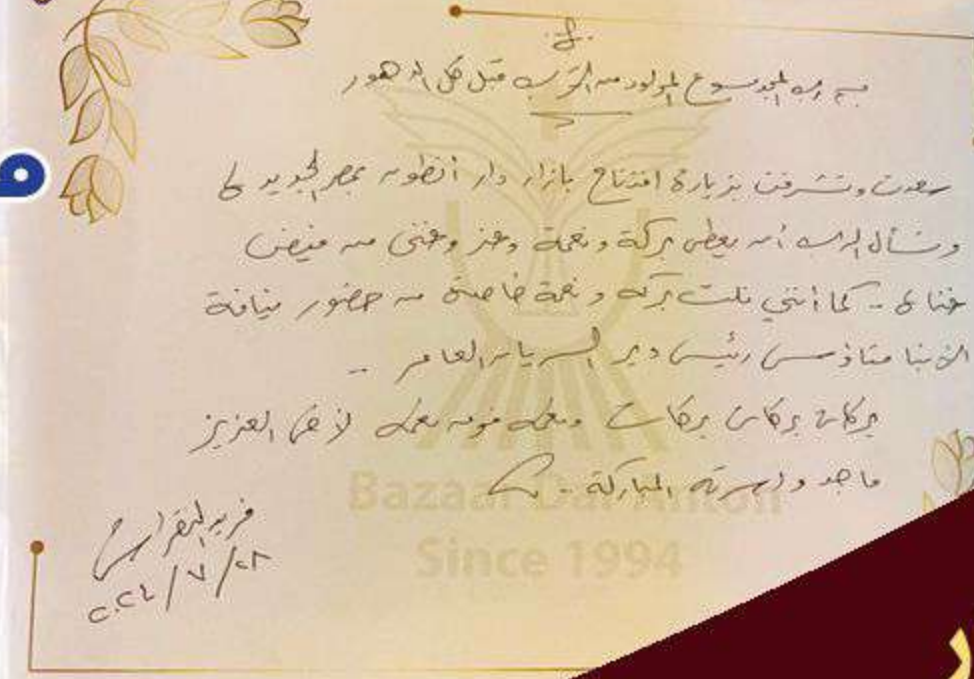 رب المجد يسوع المولود من الآب قبل كل الدهور
سعدت وتشرفت بزيارة افتتاح بازار دار أنطون بمصر الجديدة
ونسأل الرب أن يعطى بركة ونعمة وعز وغنى من فيض
غناه - كما أننى نلت بركة ونعمة خاصة من حضور نيافة
الأنبا متاؤس رئيس دير السريان العامر ..
بركات بركات بركات ونعمة فوق نعمة لأخى العزيز
ماجد وأسرته المباركة
Bazaar Dar Anton
Since 1994
٢٠٢٤/٧/٢٨